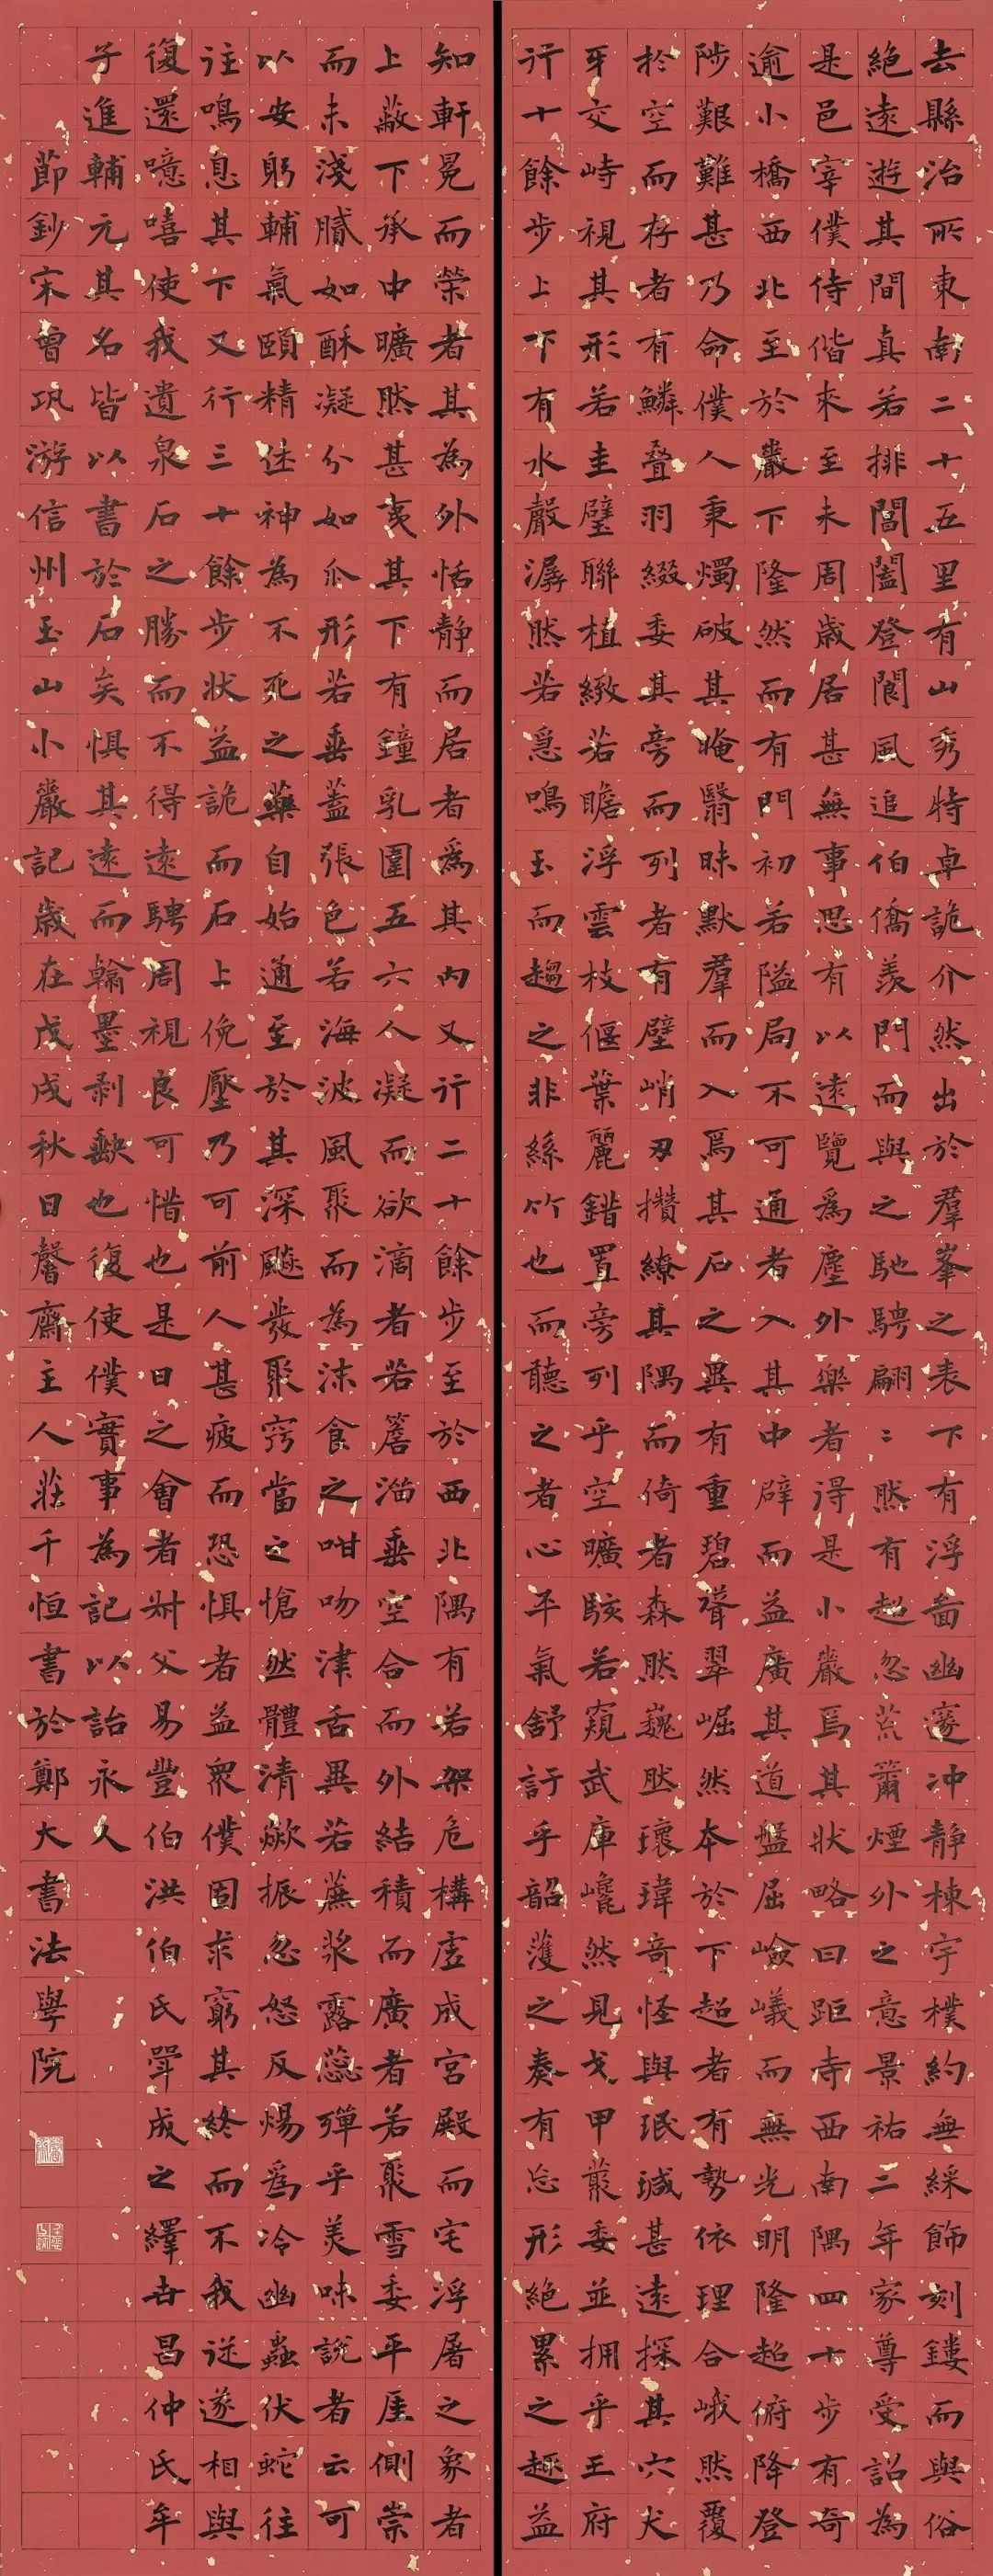 去縣治所東南二十五里有山秀特卓詭介然出於羣峯之表下有浮啚幽邃沖靜棟宇樸約無綵飾刻鏤而與俗
絕遠遊其間真若排閶闔登閬風追伯僑羨門而與之馳騁翩〻然有超忽荒籥煙外之意景祐三年家尊受詔為
是邑宰僕侍偕來至未周歲居甚無事思有以遠覽爲塵外樂者得是小巖焉其狀略曰距寺西南隅四十步有奇
逾小橋西北至於巖下隆然而有門初若隘局不可通者入其中辟而益廣其道盤屈嶮巇而無光明隆起俯降登
陟艱難甚乃命僕人秉燭破其晻翳昧默羣而入焉其石之異有重碧聳翠崛然本於下超者有勢依理合峨然覆
於空而存者有鱗叠羽綴委其旁而列者有壁峭刃攢繚其隅而倚者森然巍然瓌瑋奇怪與珉瑊甚遠探其穴犬
牙交峙視其形若圭璧聯植緻若瞻浮雲枝偃葉麗錯置旁列乎空曠駭若窺武庫巉然見戈甲叢委並拥乎王府
行十餘步上下有水聲潺然若急鳴玉而趨之非絲竹也而聽之者心平氣舒訏乎韶濩之奏有忘形絕累之趣益
知軒冕而榮者其為外恬靜而居者爲其內又行二十餘步至於西北隅有若架危構虛成宮殿而宅浮屠之象者
上蔽下承中曠然甚夷其下有鐘乳圍五六人凝而欲滴者若簷溜垂空合而外結積而廣者若聚雪委平厓側崇
而未淺膩如酥凝分如瓜形若垂蓋張色若海波風聚而為沫食之咁吻津舌異若蔗漿露蕊殫乎美味說者云可
以安躬輔氣頤精住神為不死之藥自始通至於其深颼發聚竅當之愴然體清歘振忽怒反煬爲冷幽蟲伏蛇往
往鳴息其下又行三十餘步狀益詭而石上俛壓乃可前人甚疲而恐懼者益眾僕固求窮其終而不我從遂相與
復還噫嘻使我遺泉石之勝而不得遠騁周視良可惜也是日之會者叔父易豐伯洪伯氏鞏成之繹世昌仲氏牟
子進輔元其名皆以書於石矣懼其遠而翰墨剥缺也復使僕實事為記以詒永久
節鈔宋曾巩游信州玉山小巖記歲在戊戌秋日馨齋主人莊千恒書於鄭大書法學院